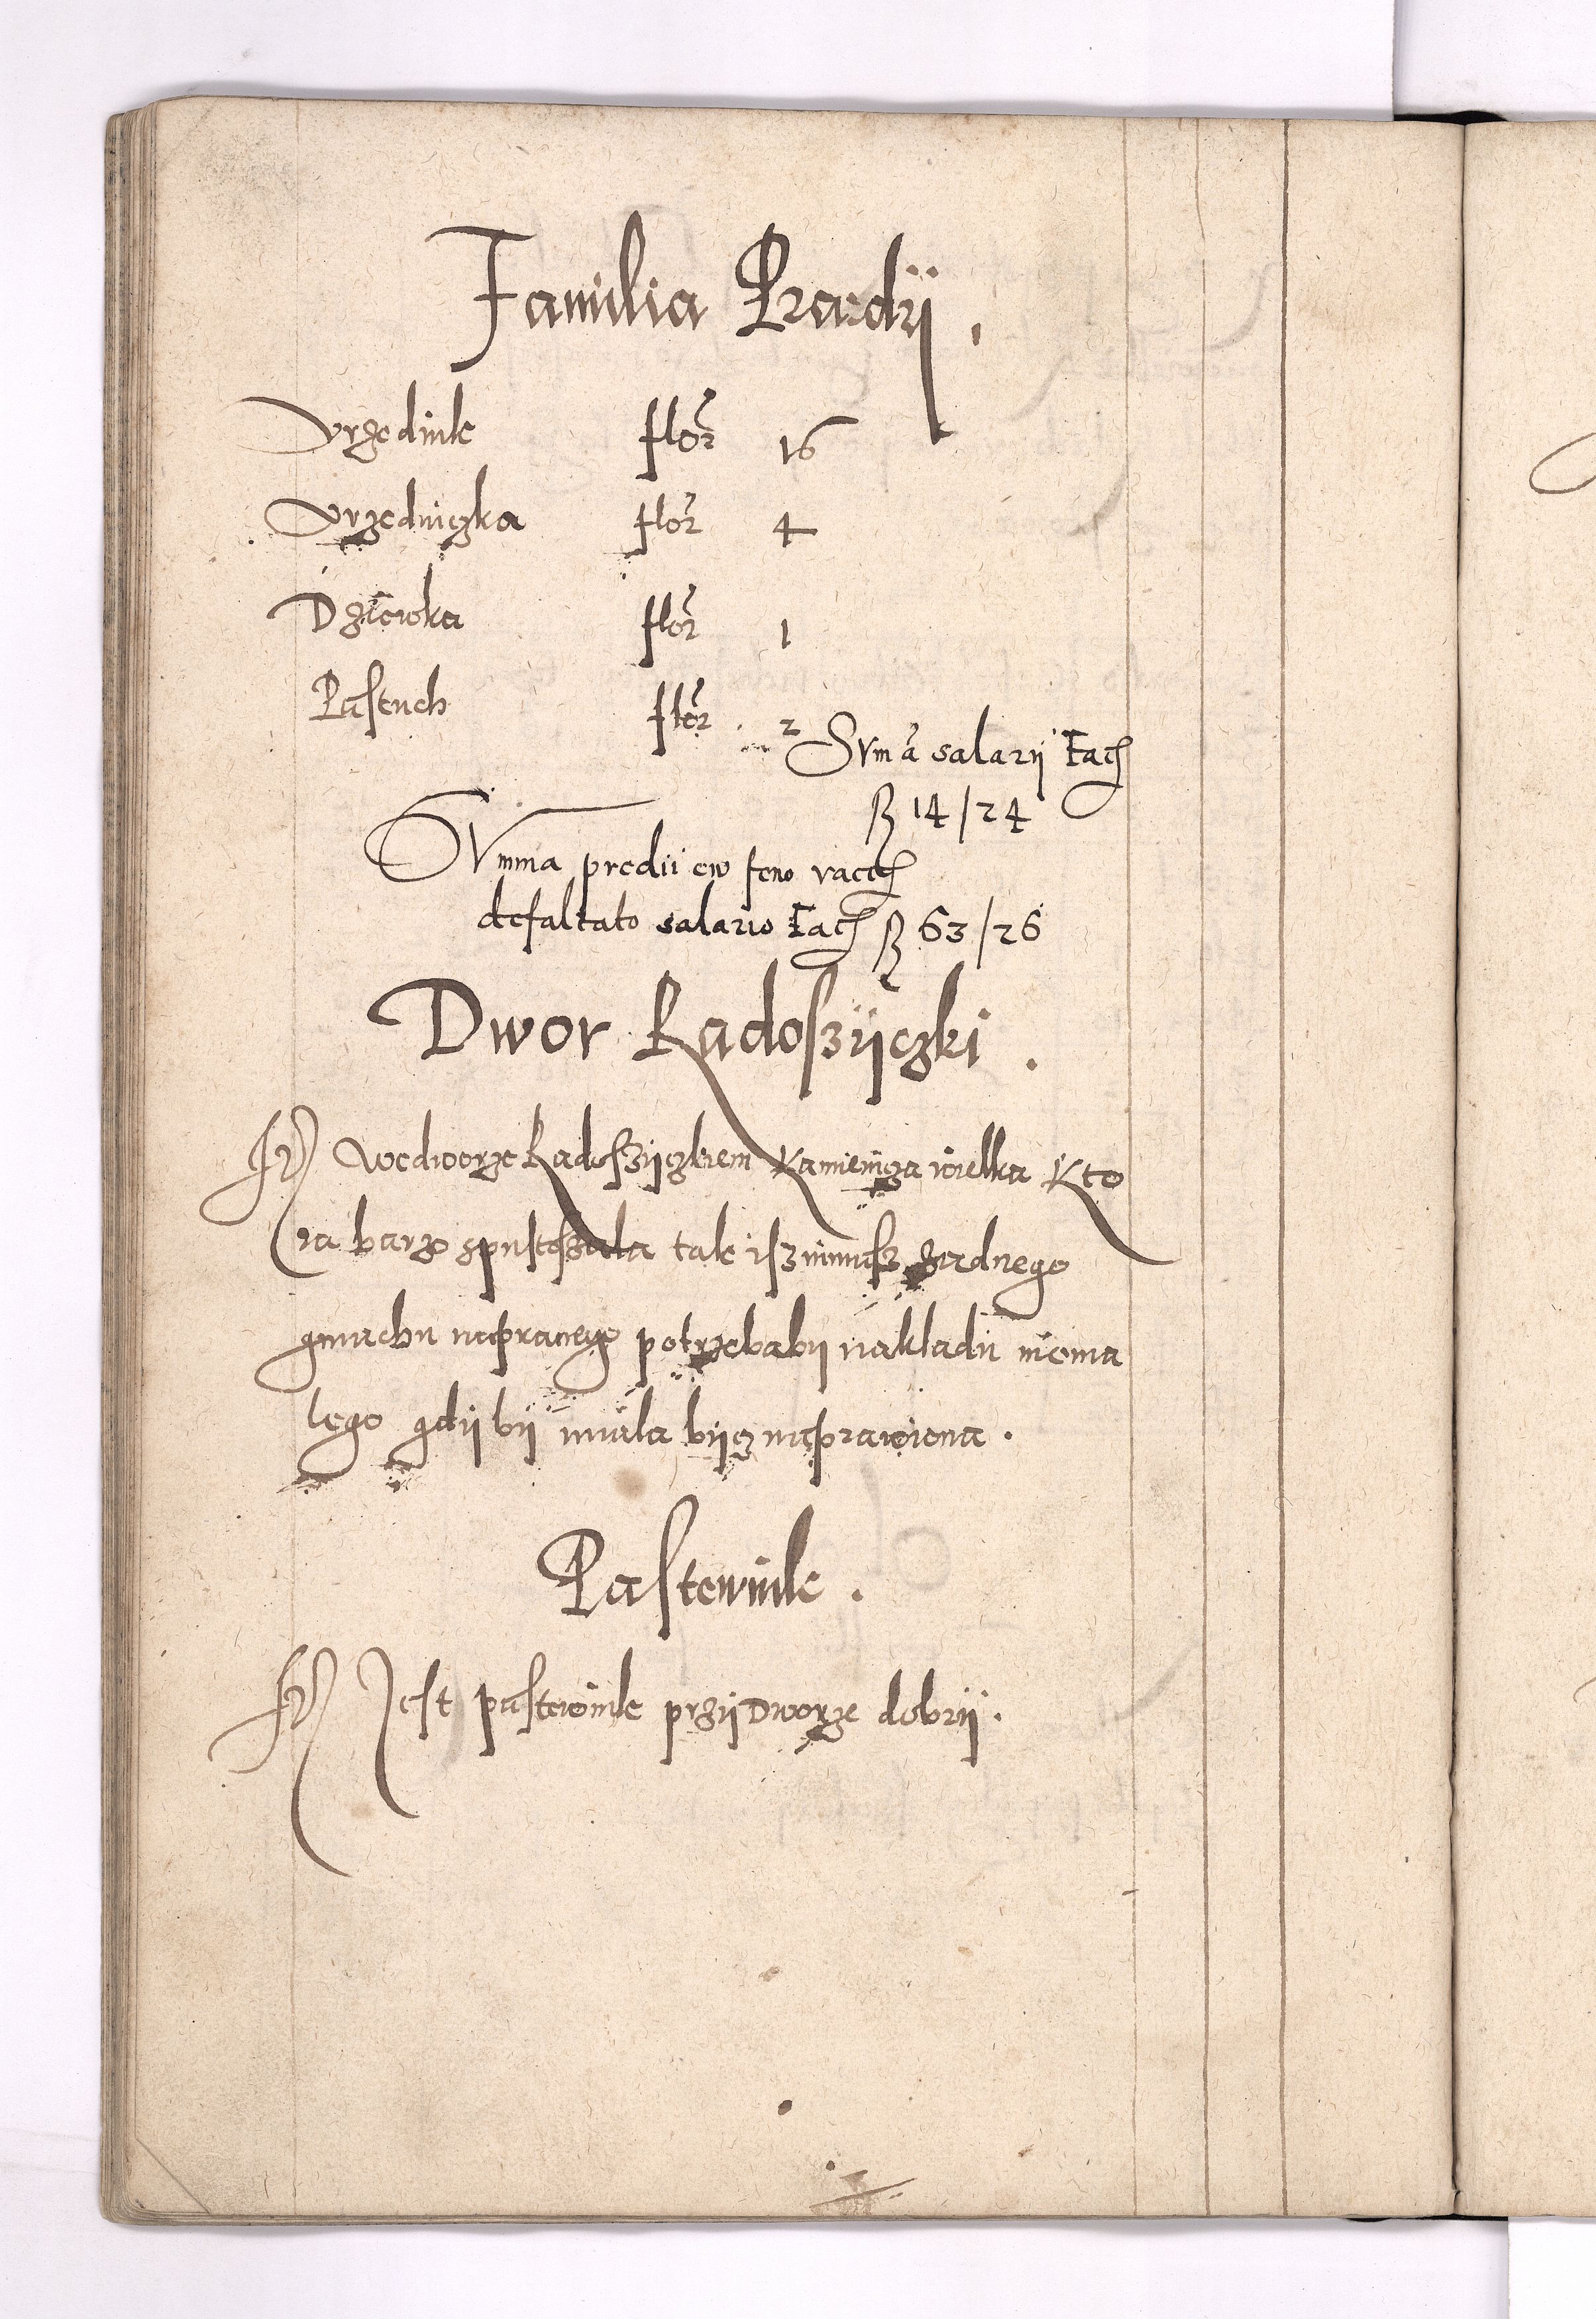 Familia Praedij .
Vrzednik flor 16
Vrzedniczka flor 4
Dziewka flor 1
Pastuch flor 2
Svma salarij fac
ꟗ 14/24
SVmma predii cum feno
defaltato salario fac ꟗ 63/26
Dwor Radoszijczki .
It Wedworze Radoszijczkiem Kamienicza wielka Kto
ra barzo spustoszala tak isz niniasz zadnego
gmachu napranego potrzebabij nakladu niema
lego gdij bij miala bijcz naprawiona .
Pastewnik .
It Jest pastewnik przij Dworze dobrij .